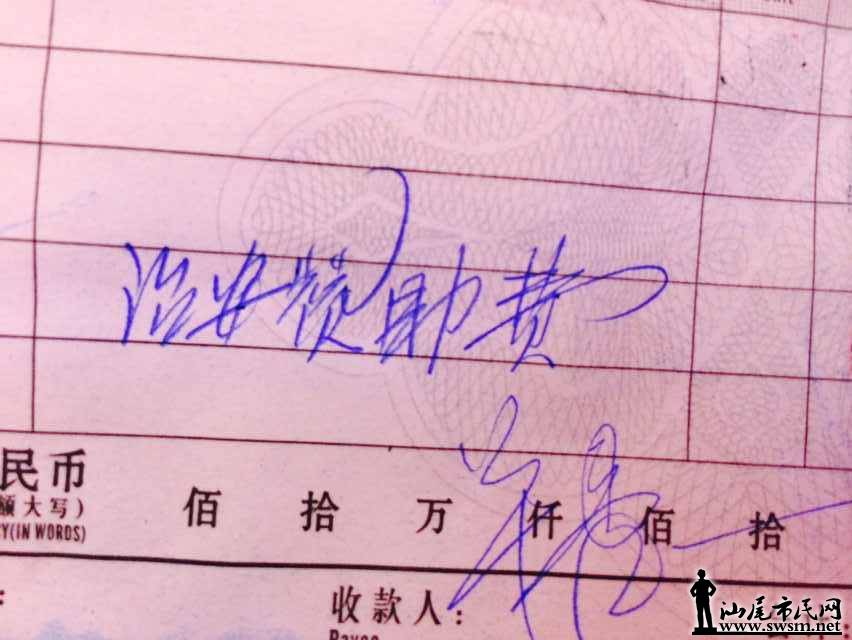 治安赞助费
民币
额大写)
Y(IN WORDS)
佰 拾 万 仟 佰 拾
收款人:
Payee
汕尾市民网
www.swsm.net